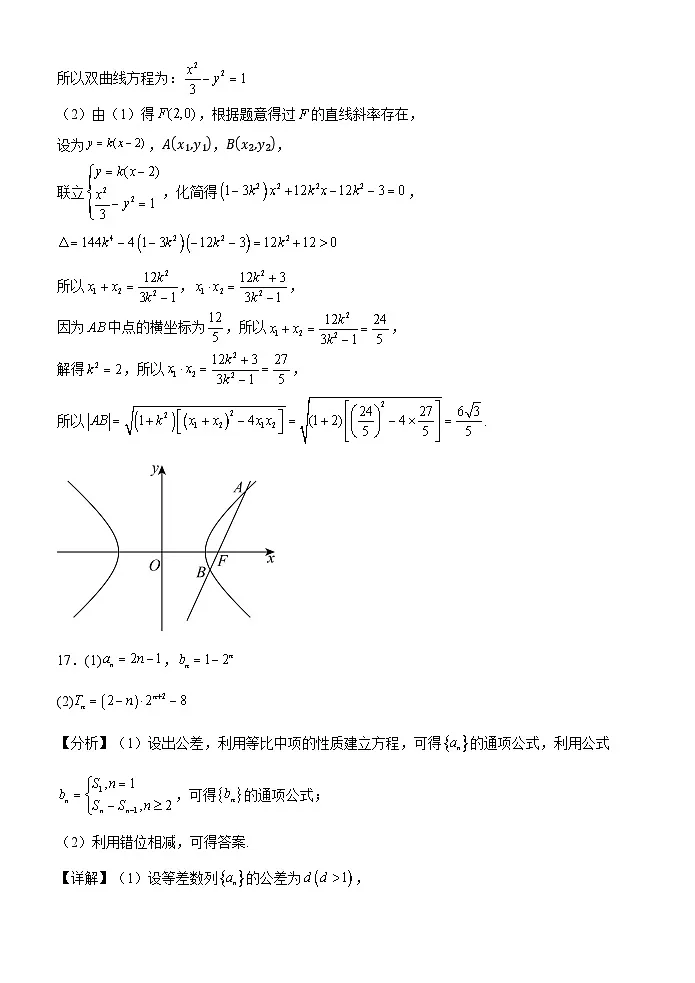 所以双曲线方程为：x²/3 − y² = 1
（2）由（1）得F(2,0)，根据题意得过F的直线斜率存在，
设为y = k(x−2)，A(x₁,y₁)，B(x₂,y₂)，
联立{y = k(x−2)  x²/3 − y² = 1，化简得(1−3k²)x²+12k²x−12k²−3=0，
Δ=144k⁴−4(1−3k²)(−12k²−3)=12k²+12>0
所以x₁+x₂=12k²/(3k²−1)，x₁·x₂=(12k²+3)/(3k²−1)，
因为AB中点的横坐标为12/5，所以x₁+x₂=12k²/(3k²−1)=24/5，
解得k²=2，所以x₁·x₂=(12k²+3)/(3k²−1)=27/5，
所以|AB|=√((1+k²)[(x₁+x₂)²−4x₁x₂])=√((1+2)[(24/5)²−4×27/5])=6√3/5.
y
A
O
F
x
B
17．(1)aₙ=2n−1，bₙ=1−2ⁿ
(2)Tₙ=(2−n)·2ⁿ⁺²−8
【分析】（1）设出公差，利用等比中项的性质建立方程，可得{aₙ}的通项公式，利用公式
bₙ={S₁,n=1  Sₙ−Sₙ₋₁,n≥2，可得{bₙ}的通项公式；
（2）利用错位相减，可得答案.
【详解】（1）设等差数列{aₙ}的公差为d(d>1)，